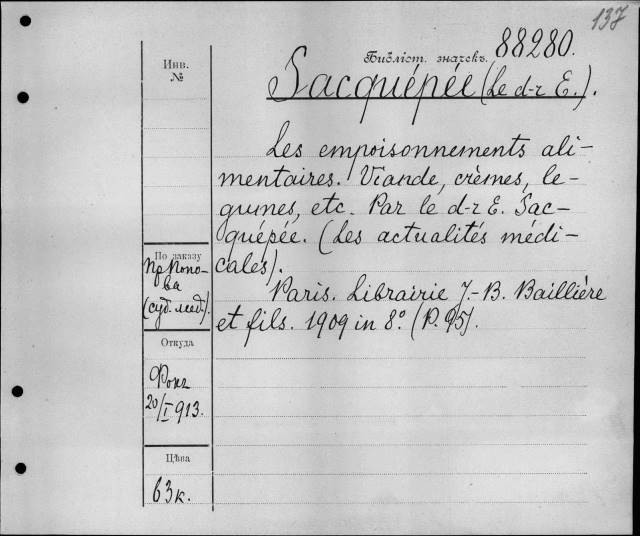 137
Инв.
№
Библіот. значекъ. 88280.
Sacquépée (Le d-r E.).
Les empoisonnements ali-
mentaires. Viande, crèmes, le-
gumes, etc. Par le d-r E. Sac-
quépée. (Les actualités médi-
cales).
Paris. Librairie J.-B. Baillière
et fils. 1909 in 8.° (P. 95).
По заказу
пр. Попо-
ва
(суд. мед.).
Откуда
20/I 913.
Цѣна
63 к.